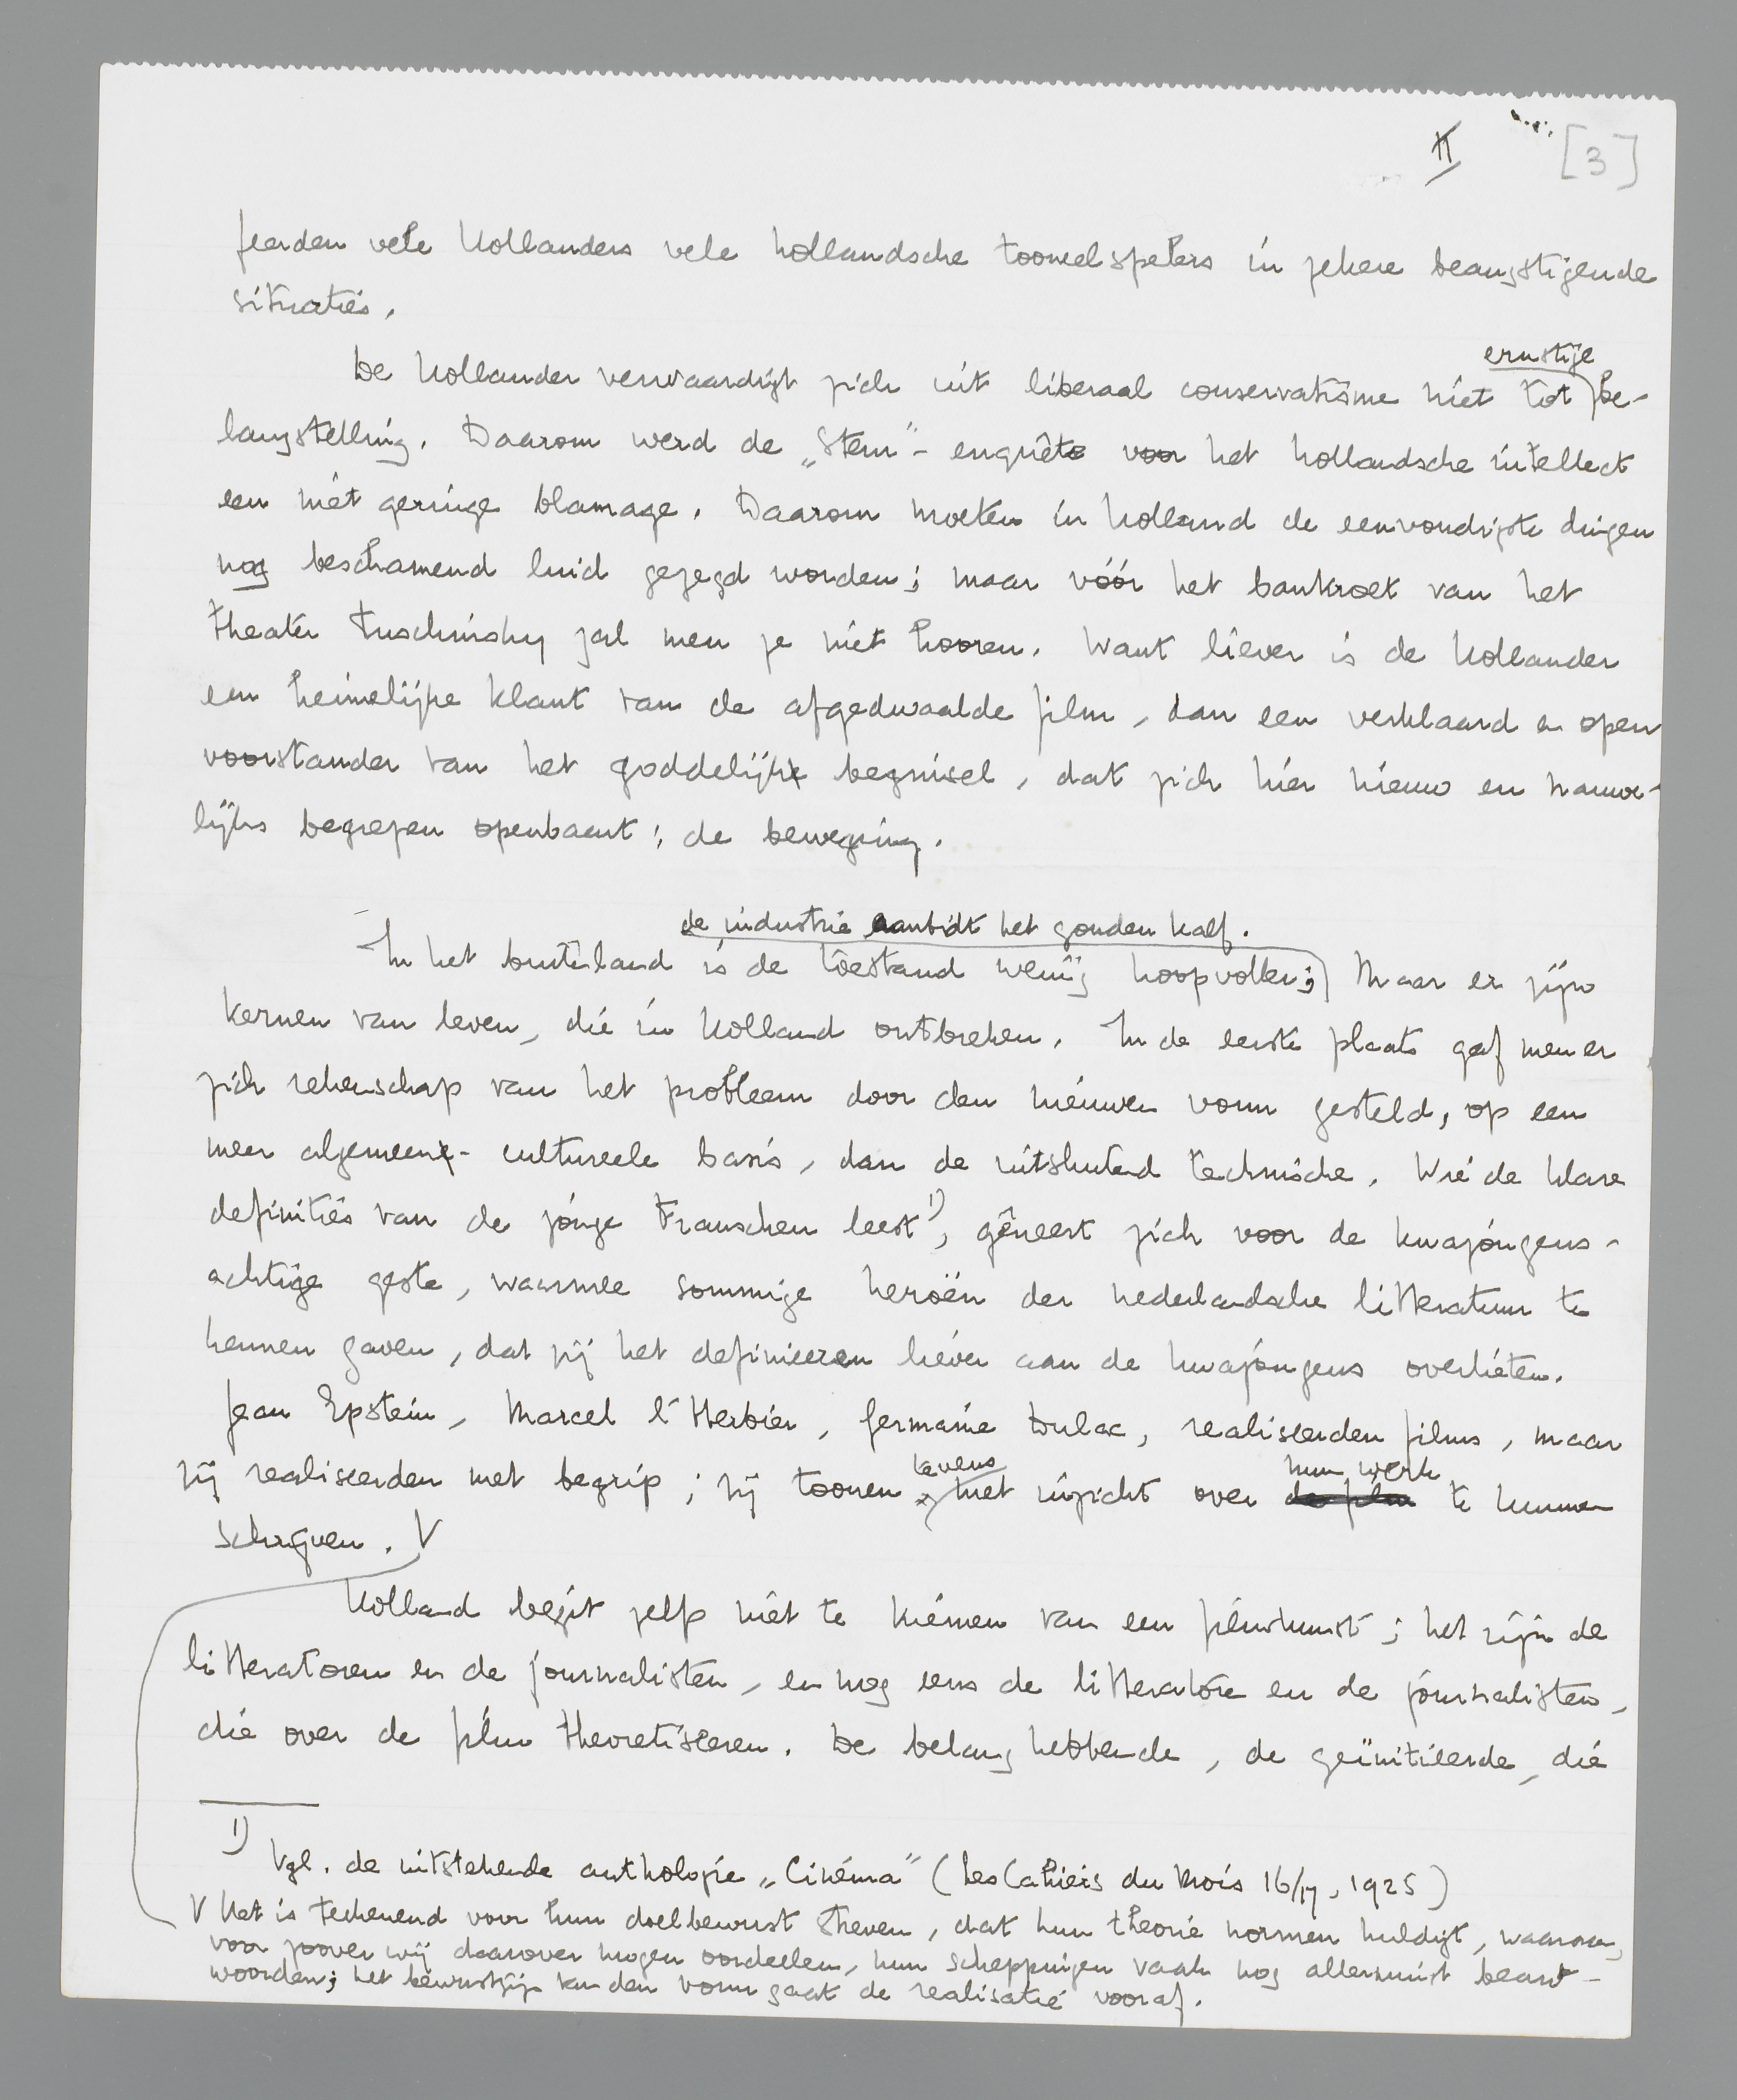 II [3]
feerden vele Hollanders vele hollandsche tooneelspelers in zekere beangstigende
situaties.
De Hollander verwaardigt zich uit liberaal conservatisme niet tot ernstige be-
langstelling. Daarom werd de „Stem"-enquête voor het hollandsche intellect
een niet geringe blamage. Daarom moeten in Holland de eenvoudigste dingen
nog beschamend luid gezegd worden; maar vóór het bankroet van het
theater Tuschinsky zal men ze niet hooren. Want liever is de Hollander
een heimelijke klant van de afgedwaalde film, dan een verklaard en open
voorstander van het goddelijk beginsel, dat zich hier nieuw en nauwe-
lijks begrepen openbaart: de beweging.
In het buitenland is de toestand weinig hoopvoller; de industrie aanbidt het gouden kalf. Maar er zijn
kernen van leven, die in Holland ontbreken. In de eerste plaats gaf men er
zich rekenschap van het probleem door den nieuwen vorm gesteld, op een
meer algemeen-cultureele basis, dan de uitsluitend technische. Wie de klare
definities van de jonge Franschen leest 1), gêneert zich voor de kwajongens-
achtige geste, waarmee sommige heroën der nederlandsche litteratuur te
kennen gaven, dat zij het definieeren liever aan de kwajongens overlieten.
Jean Epstein, Marcel l'Herbier, Germaine Dulac, realiseerden films, maar
zij realiseerden met begrip; zij toonen tevens met inzicht over de film hun werk te kunnen
schrijven. V
Holland bezit zelfs niet de kiemen van een filmkunst; het zijn de
litteratoren en de journalisten, en nog eens de litteratoren en de journalisten,
die over de film theoretiseeren. De belanghebbende, de geïnitieerde, die
1) Vgl. de uitstekende anthologie „Cinéma" (Les Cahiers du Mois 16/17, 1925)
V Het is teekenend voor hun doelbewust streven, dat hun theorie normen huldigt, waaraan,
voor zoover wij daarover mogen oordeelen, hun scheppingen vaak nog allerminst beant-
woorden; het bewustzijn van den vorm gaat de realisatie vooraf.